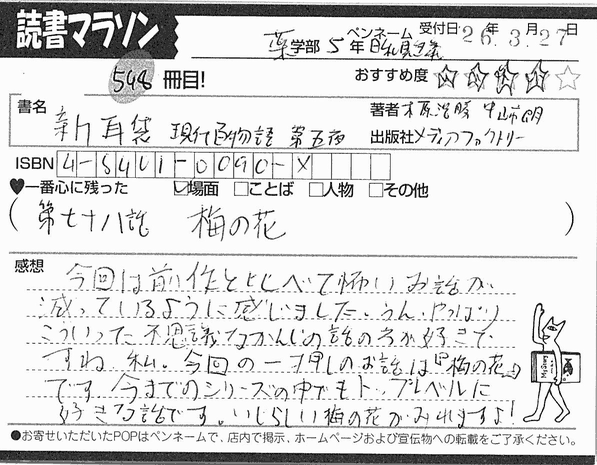 読書マラソン
薬学部 5年 ペンネーム 受付日 26年 3月27日
548冊目! おすすめ度
書名 新耳袋 現代百物語 第五夜
著者 木原浩勝 中山市朗
出版社 メディアファクトリー
ISBN 4-8401-0090-X
♥一番心に残った ☑場面 □ことば □人物 □その他
(第七十八話 梅の花)
感想
今回は前作と比べて怖いお話が
減っているように感じました。うん、やっぱり
こういった不思議なかんじの話の方が好きで
すね、私。今回の一押しのお話は『梅の花』
です。今までのシリーズの中でもトップレベルに
好きな話です。いじらしい梅の花がみれますよ!
●お寄せいただいたPOPはペンネームで、店内で掲示、ホームページおよび宣伝物への転載をご了承ください。